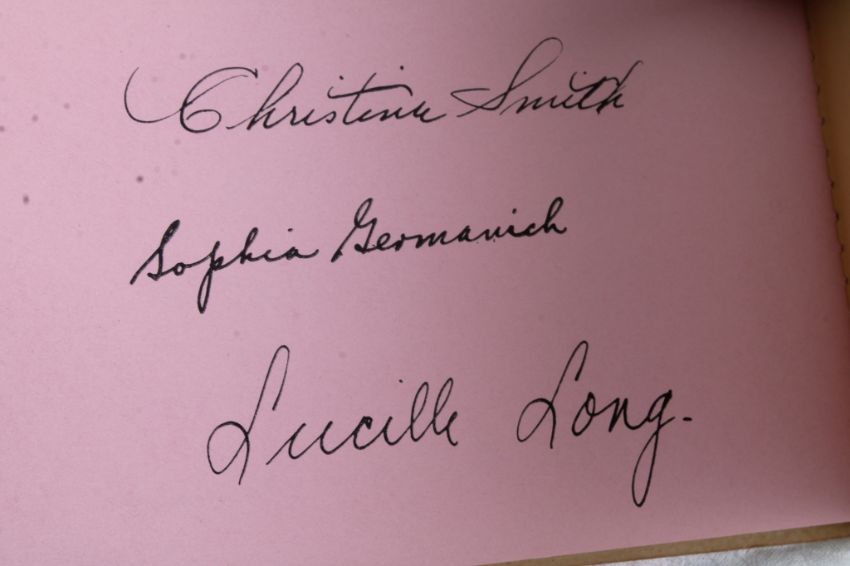 Christine Smith
Sophia Germanich
Lucille Long.